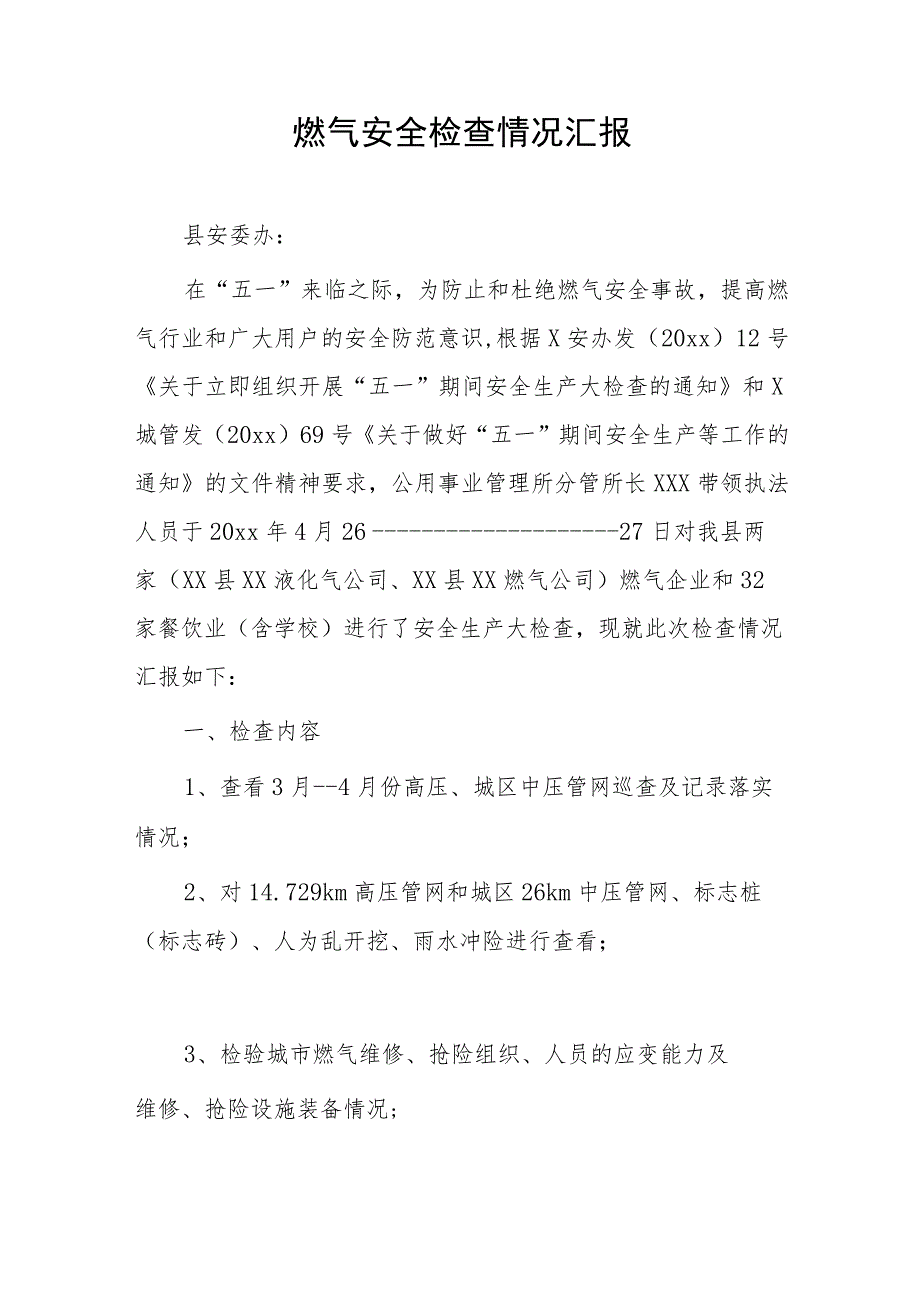 燃气安全检查情况汇报
县安委办：
在“五一”来临之际，为防止和杜绝燃气安全事故，提高燃
气行业和广大用户的安全防范意识,根据X安办发（20xx）12号
《关于立即组织开展“五一”期间安全生产大检查的通知》和X
城管发（20xx）69号《关于做好“五一”期间安全生产等工作的
通知》的文件精神要求，公用事业管理所分管所长XXX带领执法
人员于20xx年4月26--------------------27日对我县两
家（XX县XX液化气公司、XX县XX燃气公司）燃气企业和32
家餐饮业（含学校）进行了安全生产大检查，现就此次检查情况
汇报如下：
一、检查内容
1、查看3月--4月份高压、城区中压管网巡查及记录落实
情况；
2、对14.729km高压管网和城区26km中压管网、标志桩
（标志砖）、人为乱开挖、雨水冲险进行查看；
3、检验城市燃气维修、抢险组织、人员的应变能力及
维修、抢险设施装备情况;